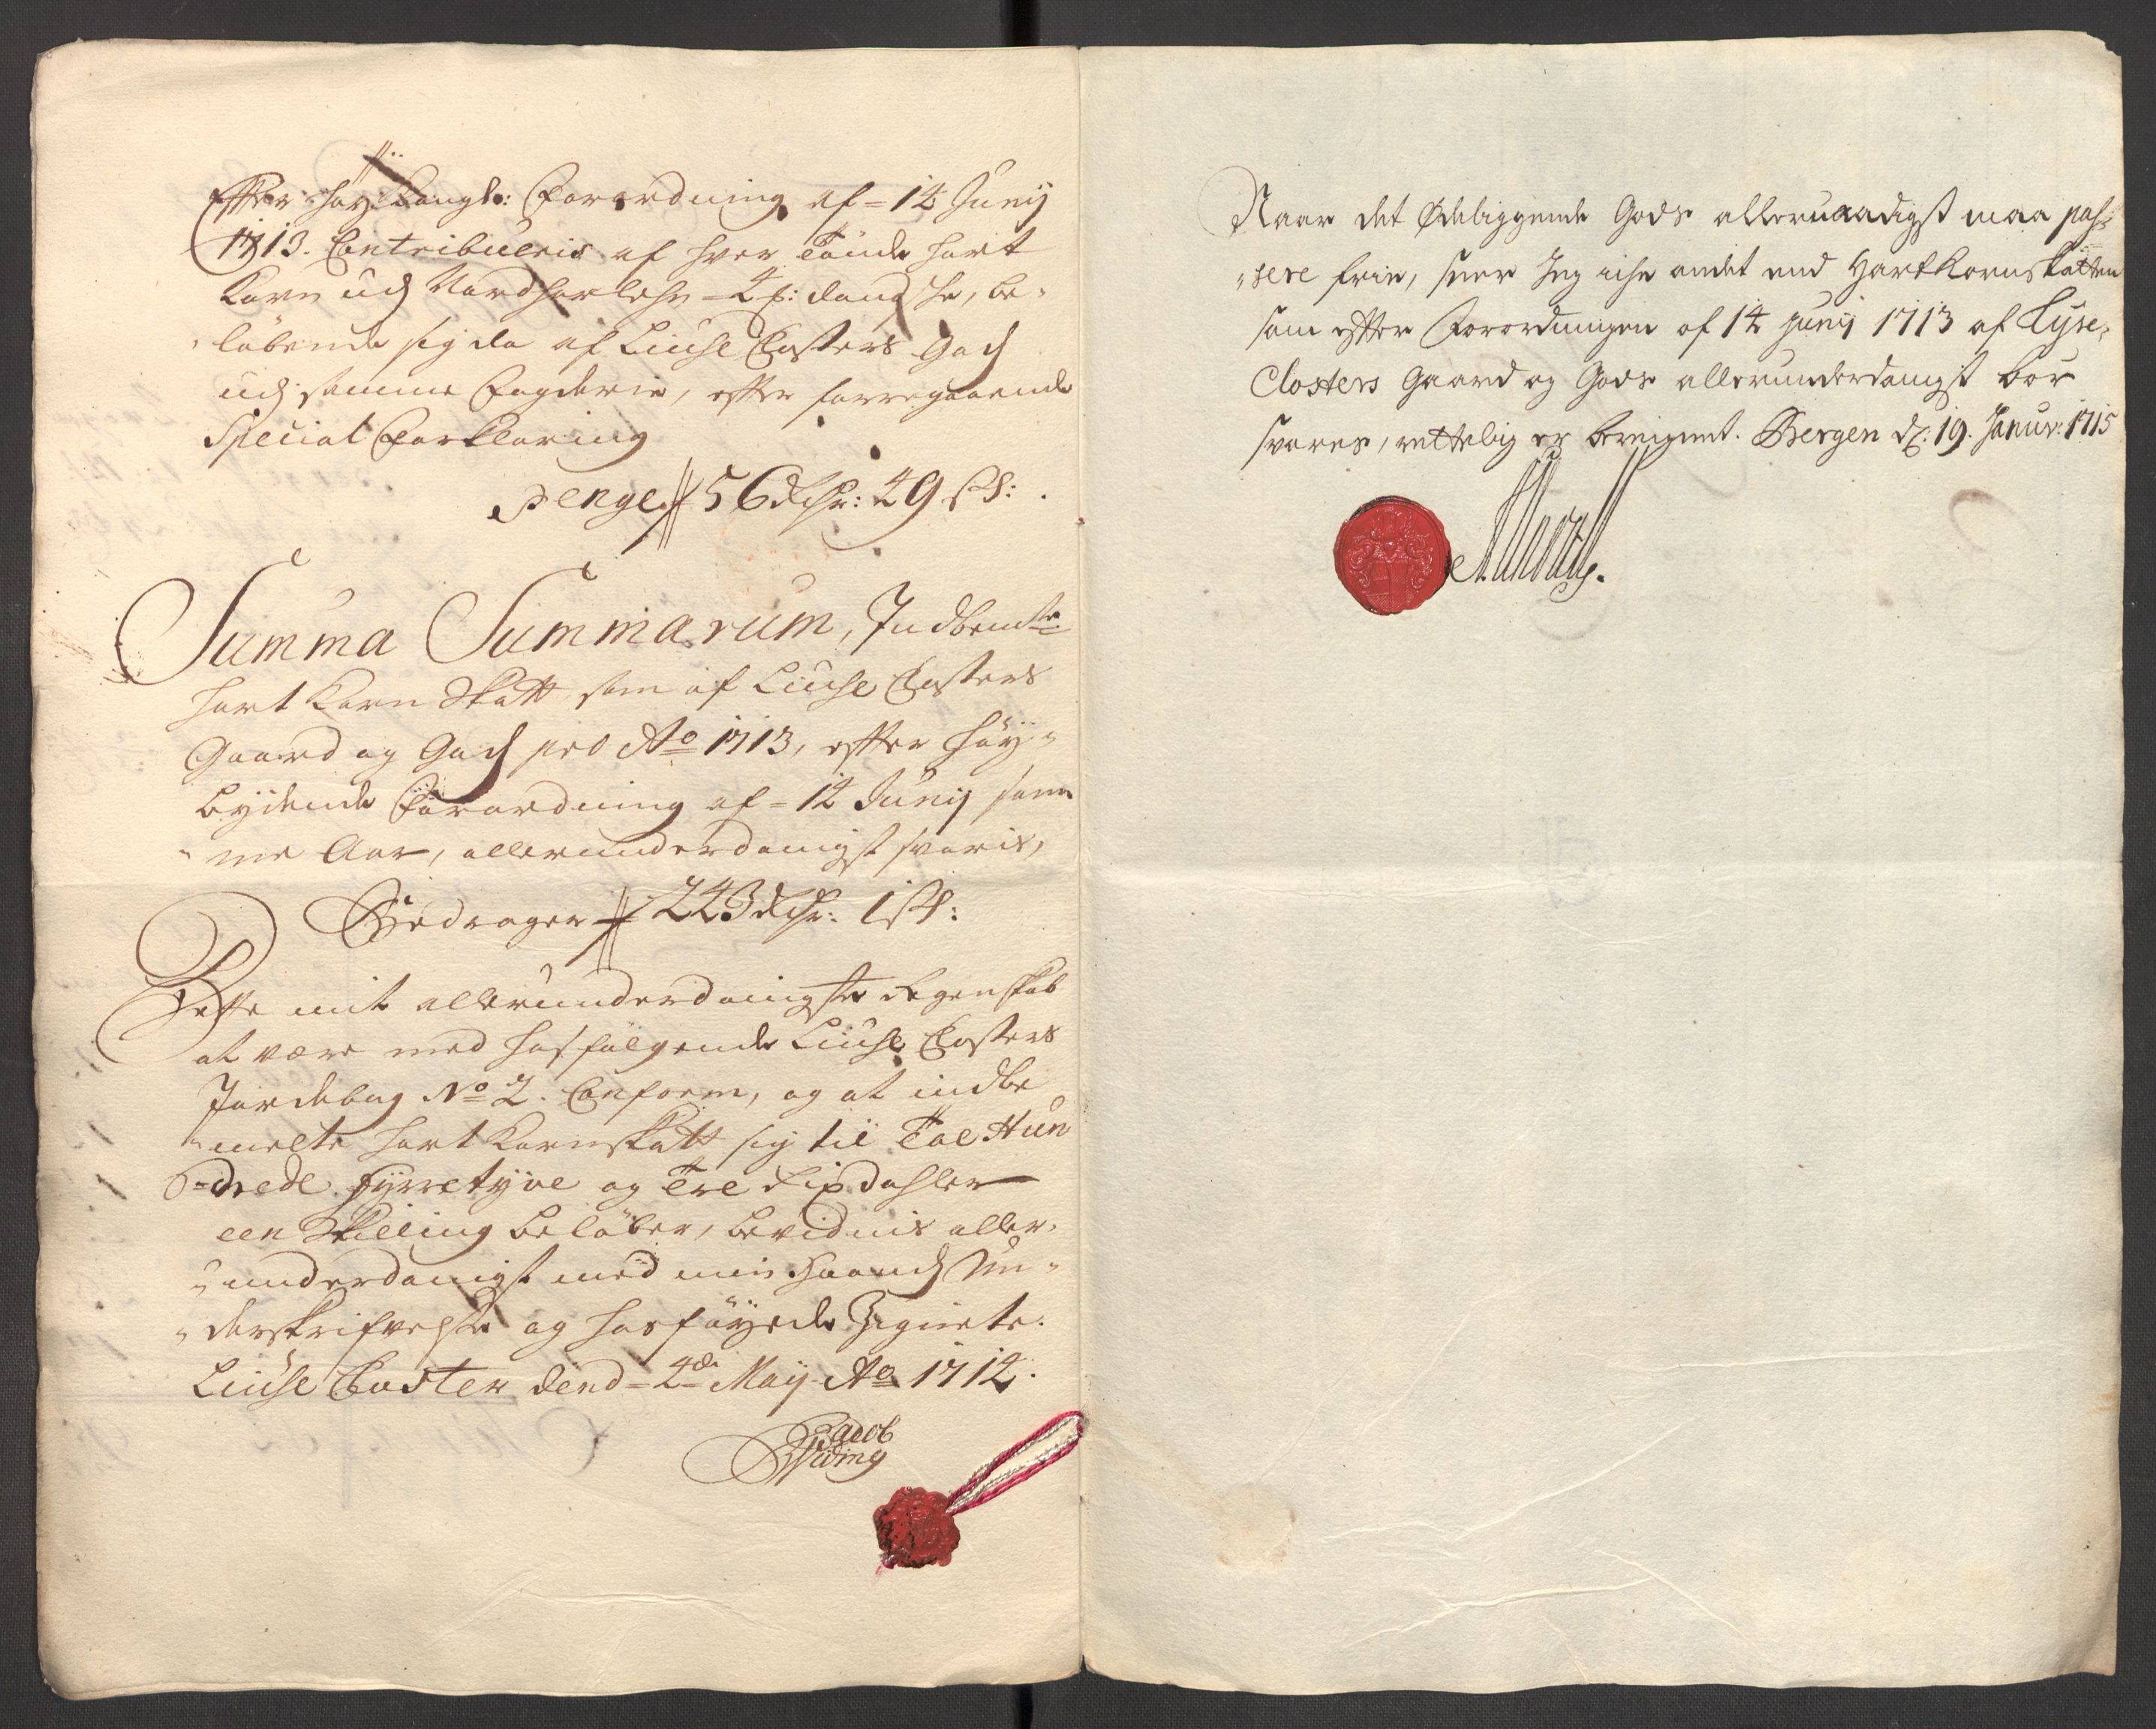 Efter høy Kongl: Forordning af = 14 Junij
1713. Contribueris af hver Tønde hart
Korn udj Nordhorlehn = 4 ß: dansche, be-
løbende sig da af Liuse Closters Gods
udj samme Fogderie, efter foregaaende
Special Forklaring
Penge 56 dlr: 49 sß:
Summa Summarum, Indbemte
hart Korn Skatt som af Liuse Closters
Gaard og Gods pro Ao 1713, efter høy-
bydende Forordning af = 14 Junij sam-
me Aar, allerunderdanigst svaris,
Bedrager 243 dlr: 1 sß:
Dette mit allerunderdanigste Regenskab
at være med hosfølgende Liuse Closters
Jordebog No 2. Conform, og at indbe
melte hart Kornskatt sig til Toe Hun
drede fyrretyve og Tre Rixdahler
een Skilling beløber, bevidnis aller-
underdanigst med min Haands Un-
derskrifvelse og hosføyede Zignete.
Liuse Closter dend = 4de Maij Ao 1714.
Jacob
Widing
Naar det Ødeliggende Gods allernaadigst maa pas-
sere frie, seer Jeg iche andet end Hartkornskatten
som efter Forordningen af 14 Junij 1713 af Lyse-
Closters Gaard og Gods allerunderdanigst bør
svares, rettelig er beregnet. Bergen d: 19. Januar: 1715